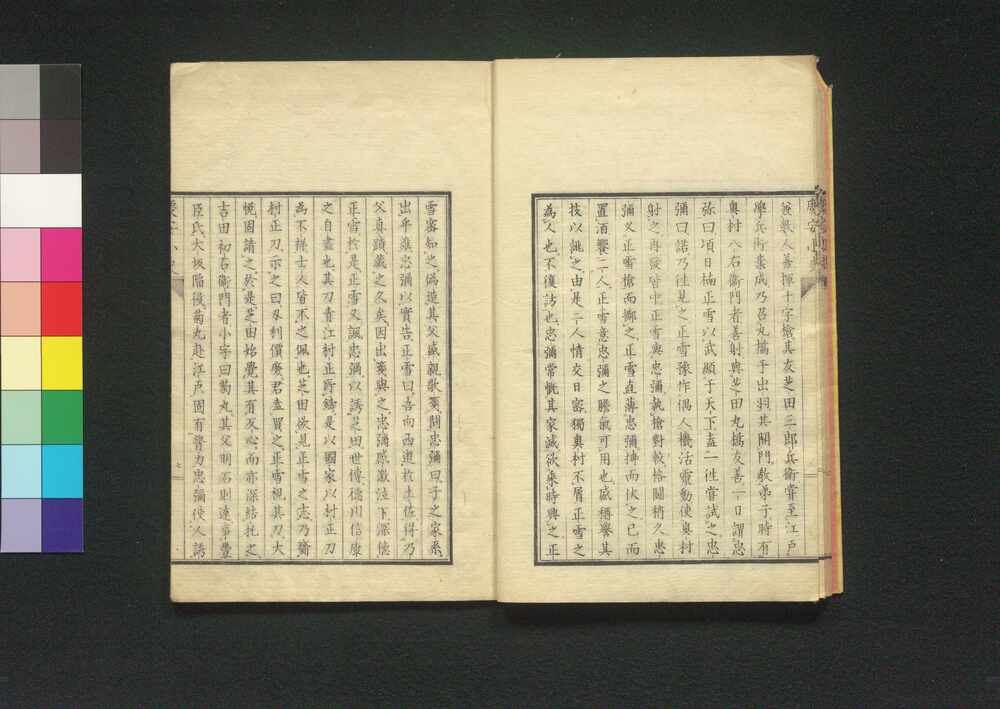 慶安小史
兼數人善揮十字槍其友芝田三郎兵衛嘗至江戶
學兵術業成乃召丸橋于出羽其開門教弟子時有
奧村八右衛門者善射與芝田丸橋友善一日謂忠
弥曰頃日楠正雪以武顯于天下盍一往嘗試之忠
彌曰諾乃往見之正雪豫作偶人機活電動使奧村
射之再發皆中正雪與忠彌執槍對較格鬪稍久忠
彌叉正雪槍而擲之正雪直薄忠彌摶而伏之已而
置酒饗二人正雪意忠彌之膽氣可用也盛稱譽其
技以誂之由是二人情交日密獨奧村不屑正雪之
為人也不復訪也忠彌常慨其家滅欲乘時興之正
雪密知之偽造其父盛親歌箋問忠彌曰子之家系
出乎誰忠彌以實告正雪曰吾向西遊於土佐得乃
父真蹟藏之久矣因出箋與之忠彌感激泣下深德
正雪於是正雪又諷忠彌以誘芝田世傳德川信康
之自盡也其刀青江村正所鑄是以國家以村正刀
為不祥士人皆不之佩也芝田欲見正雪之志乃齎
村正刀示之曰名利價廉君盍買之正雪視其刀大
悅固請之於是芝田始覺其有反心而亦深結托之
吉田初右衛門者小字曰菊丸其父明石則遠事豐
臣氏大坂陷後菊丸赴江戶固有膂力忠彌使人誘
慶安小史